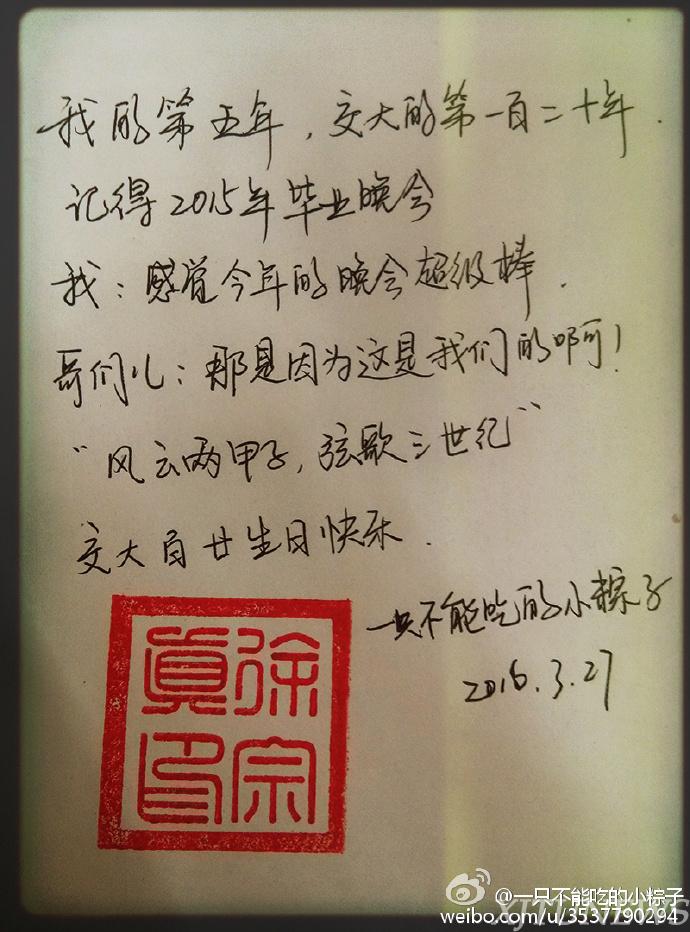 我的第五年，交大的第一百二十年.
记得2015年毕业晚会
我：感觉今年的晚会超级棒.
哥们儿：那是因为这是我们的啊！
“风云两甲子，弦歌三世纪”
交大百廿生日快乐.
一只不能吃的小粽子
2016.3.27
徐宗真印
@一只不能吃的小粽子
XJTUNEWS
weibo.com/u/3537790294